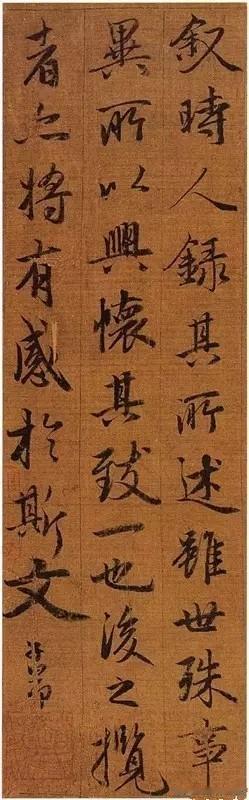 敘時人録其所述雖世殊事
異所以興懷其致一也後之攬
者亦將有感於斯文